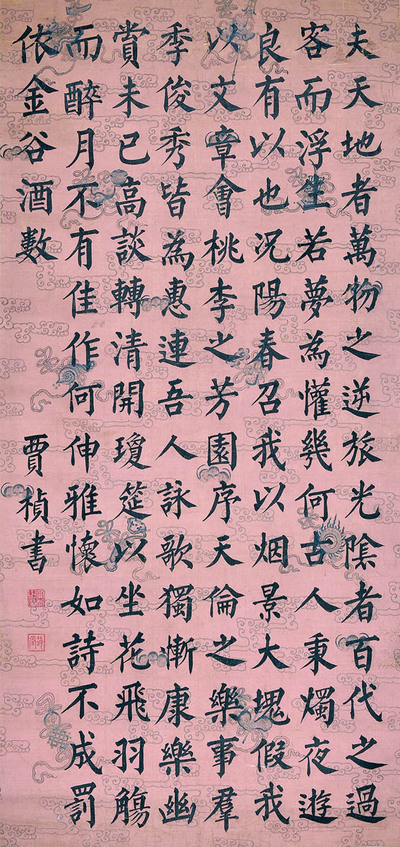 夫天地者萬物之逆旅光陰者百代之過
客而浮生若夢為懽幾何古人秉燭夜遊
良有以也況陽春召我以烟景大塊假我
以文章會桃李之芳園序天倫之樂事羣
季俊秀皆為惠連吾人詠歌獨慚康樂幽
賞未已高談轉清開瓊筵以坐花飛羽觴
而醉月不有佳作何伸雅懷如詩不成罰
依金谷酒數
賈楨書